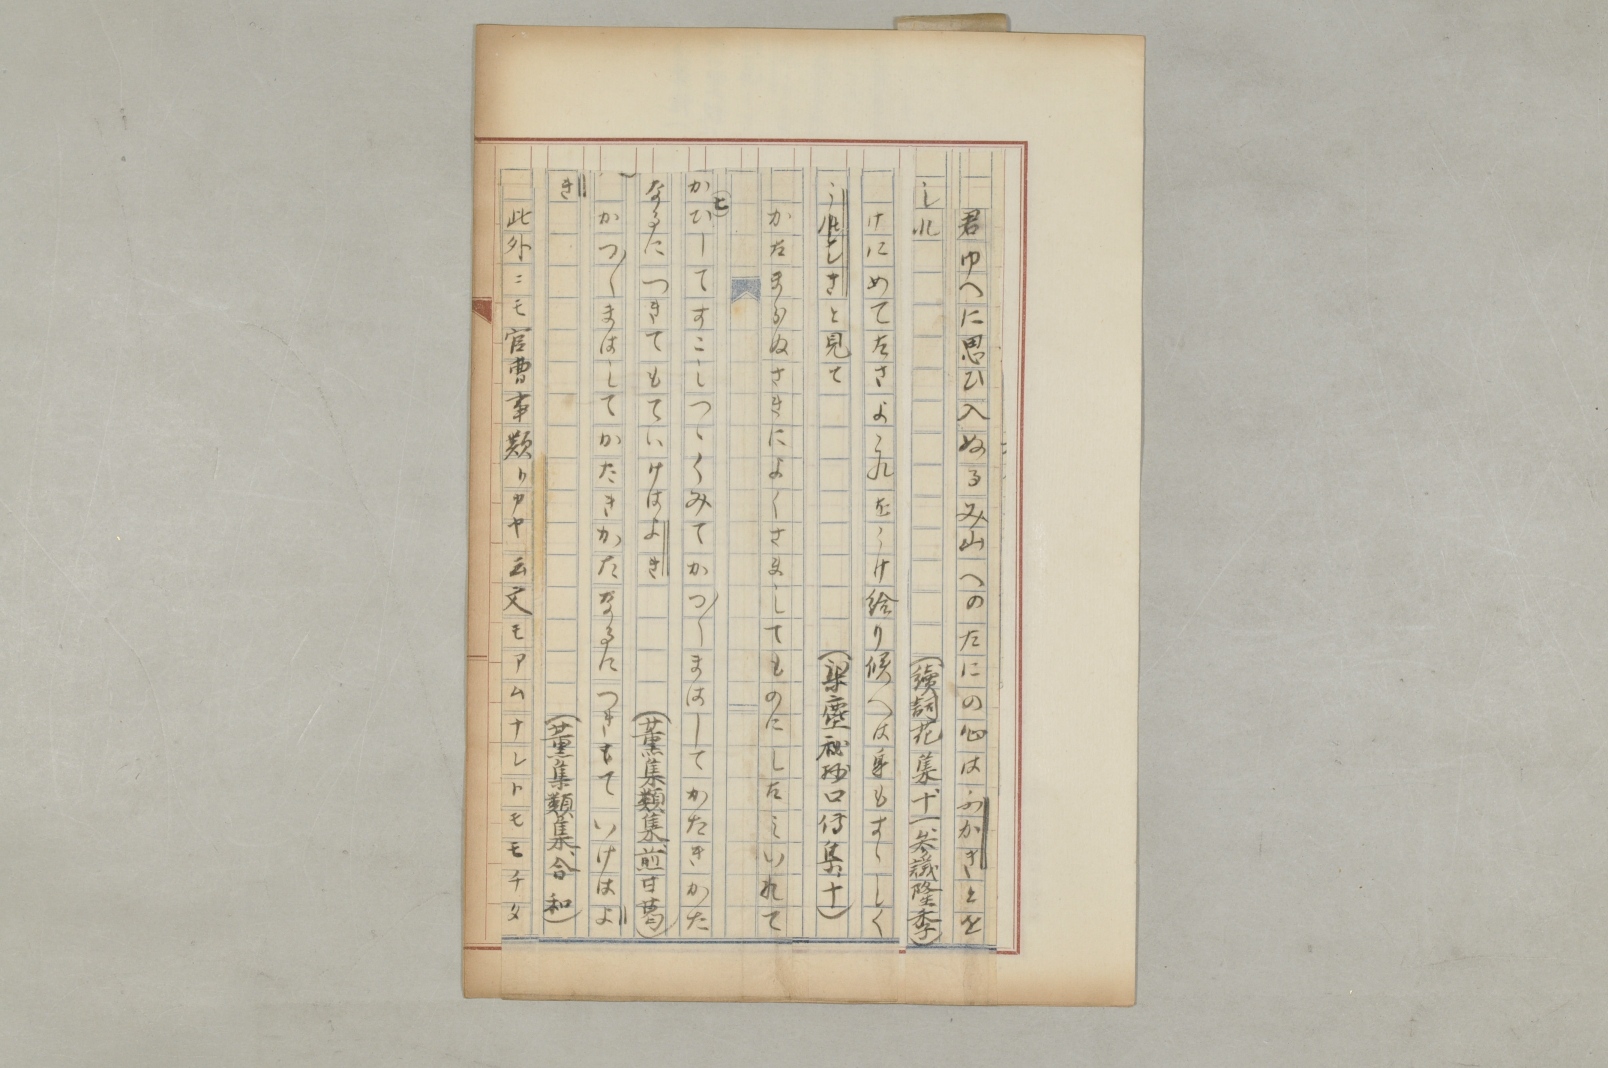 君ゆへに思ひ入ぬるみ山へのたにの心はふかきとを
しれ　（續詞花集十一、参議隆季）
けにめてたさよこれをうけ給り候へは身もすゝしく
うれしきと見て　（梁塵秘抄口傳集、十）
かたまらぬさきによくさましてものにしたみいれて
かひしてすこしつゝくみてかつ〱まはしてかたきかた
なるにつきてもていけはよき　（薫集類集、煎甘葛）
かつ〱まはしてかたきかたなるにつきもていけはよ
き　（薫集類集、合和）
此外ニモ官曹事類トカヤ云文モアムナレトモモチタ